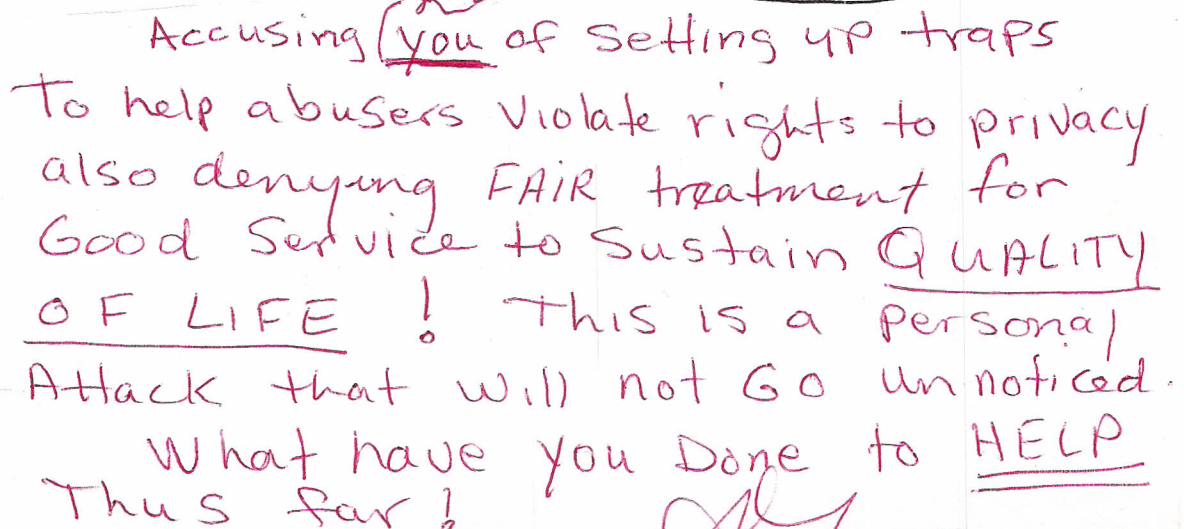 Accusing (you of setting up traps
To help abusers Violate rights to privacy
also denying FAIR treatment for
Good Service to Sustain QUALITY
OF LIFE ! This is a personal
Attack that will not GO unnoticed.
What have you Done to HELP
Thus far!